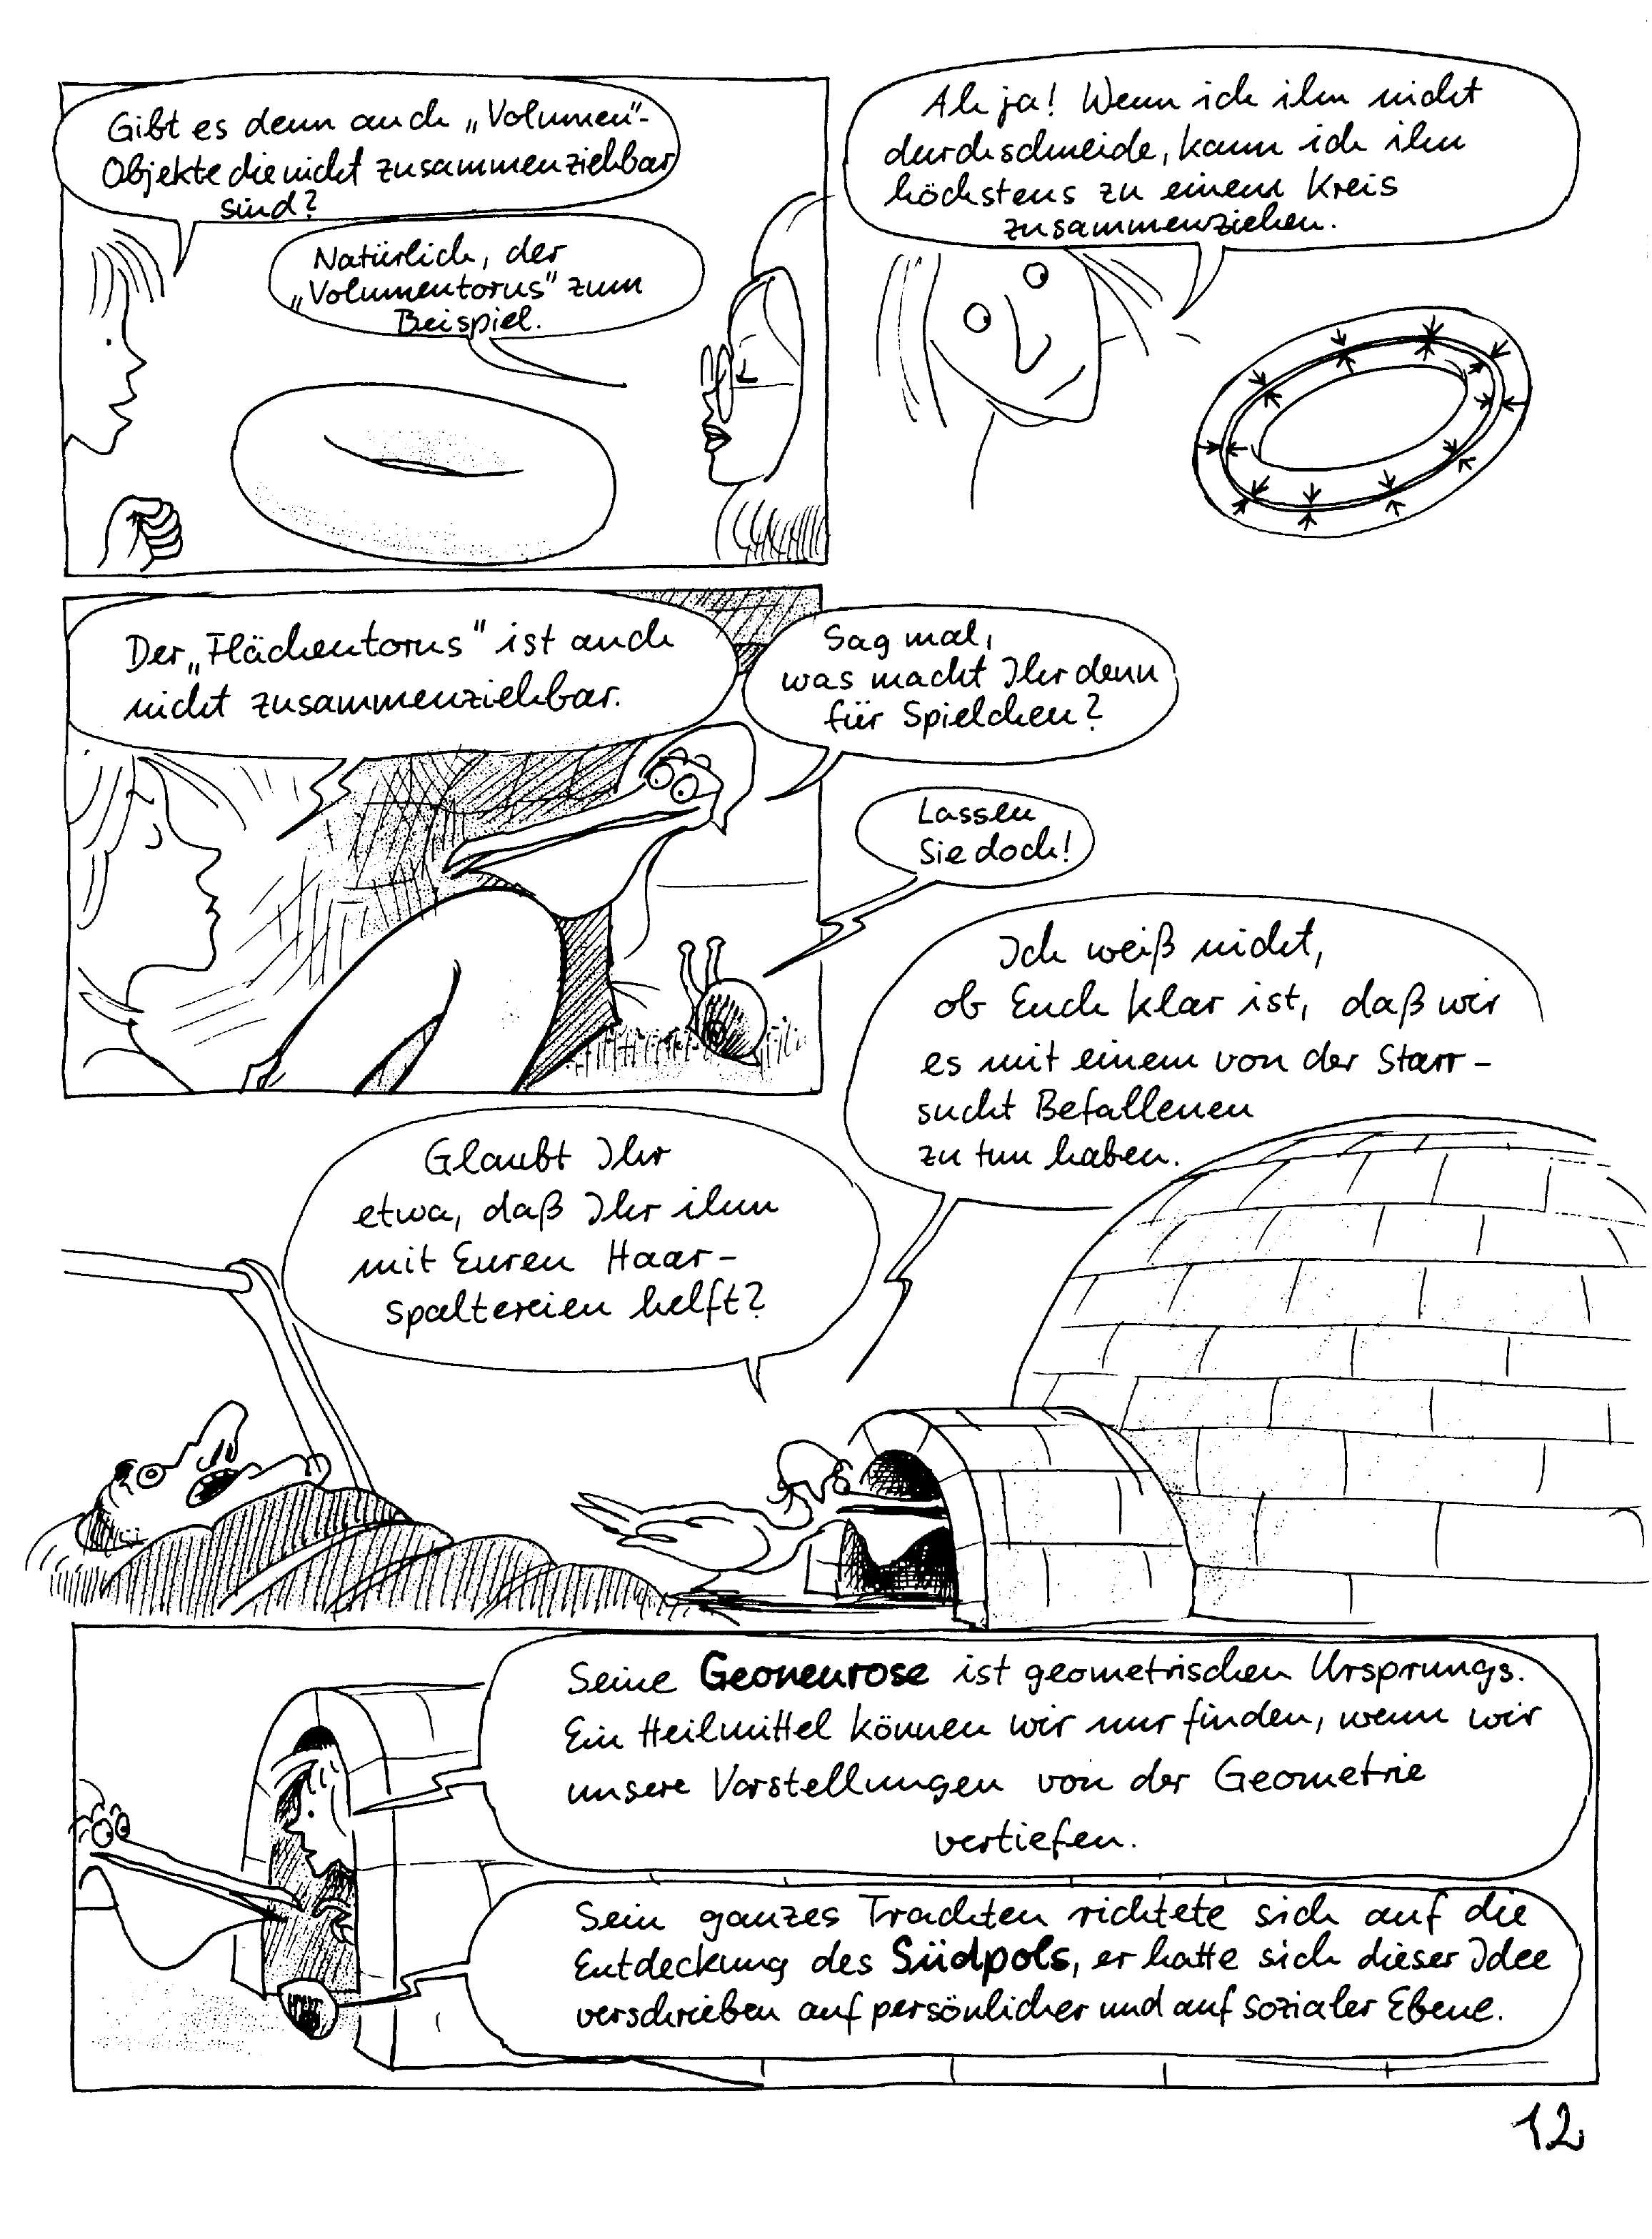 Gibt es denn auch „Volumen"-
Objekte die nicht zusammenziehbar
sind?
Natürlich, der
„Volumentorus" zum
Beispiel.
Ah ja! Wenn ich ihn nicht
durchschneide, kann ich ihn
höchstens zu einem Kreis
zusammenziehen.
Der „Flächentorus" ist auch
nicht zusammenziehbar.
Sag mal,
was macht Ihr denn
für Spielchen?
Lassen
Sie doch!
Ich weiß nicht,
ob Euch klar ist, daß wir
es mit einem von der Starr-
sucht Befallenen
zu tun haben.
Glaubt Ihr
etwa, daß Ihr ihm
mit Euren Haar-
spaltereien helft?
Seine Geoneurose ist geometrischen Ursprungs.
Ein Heilmittel können wir nur finden, wenn wir
unsere Vorstellungen von der Geometrie
vertiefen.
Sein ganzes Trachten richtete sich auf die
Entdeckung des Südpols, er hatte sich dieser Idee
verschrieben auf persönlicher und auf sozialer Ebene.
12